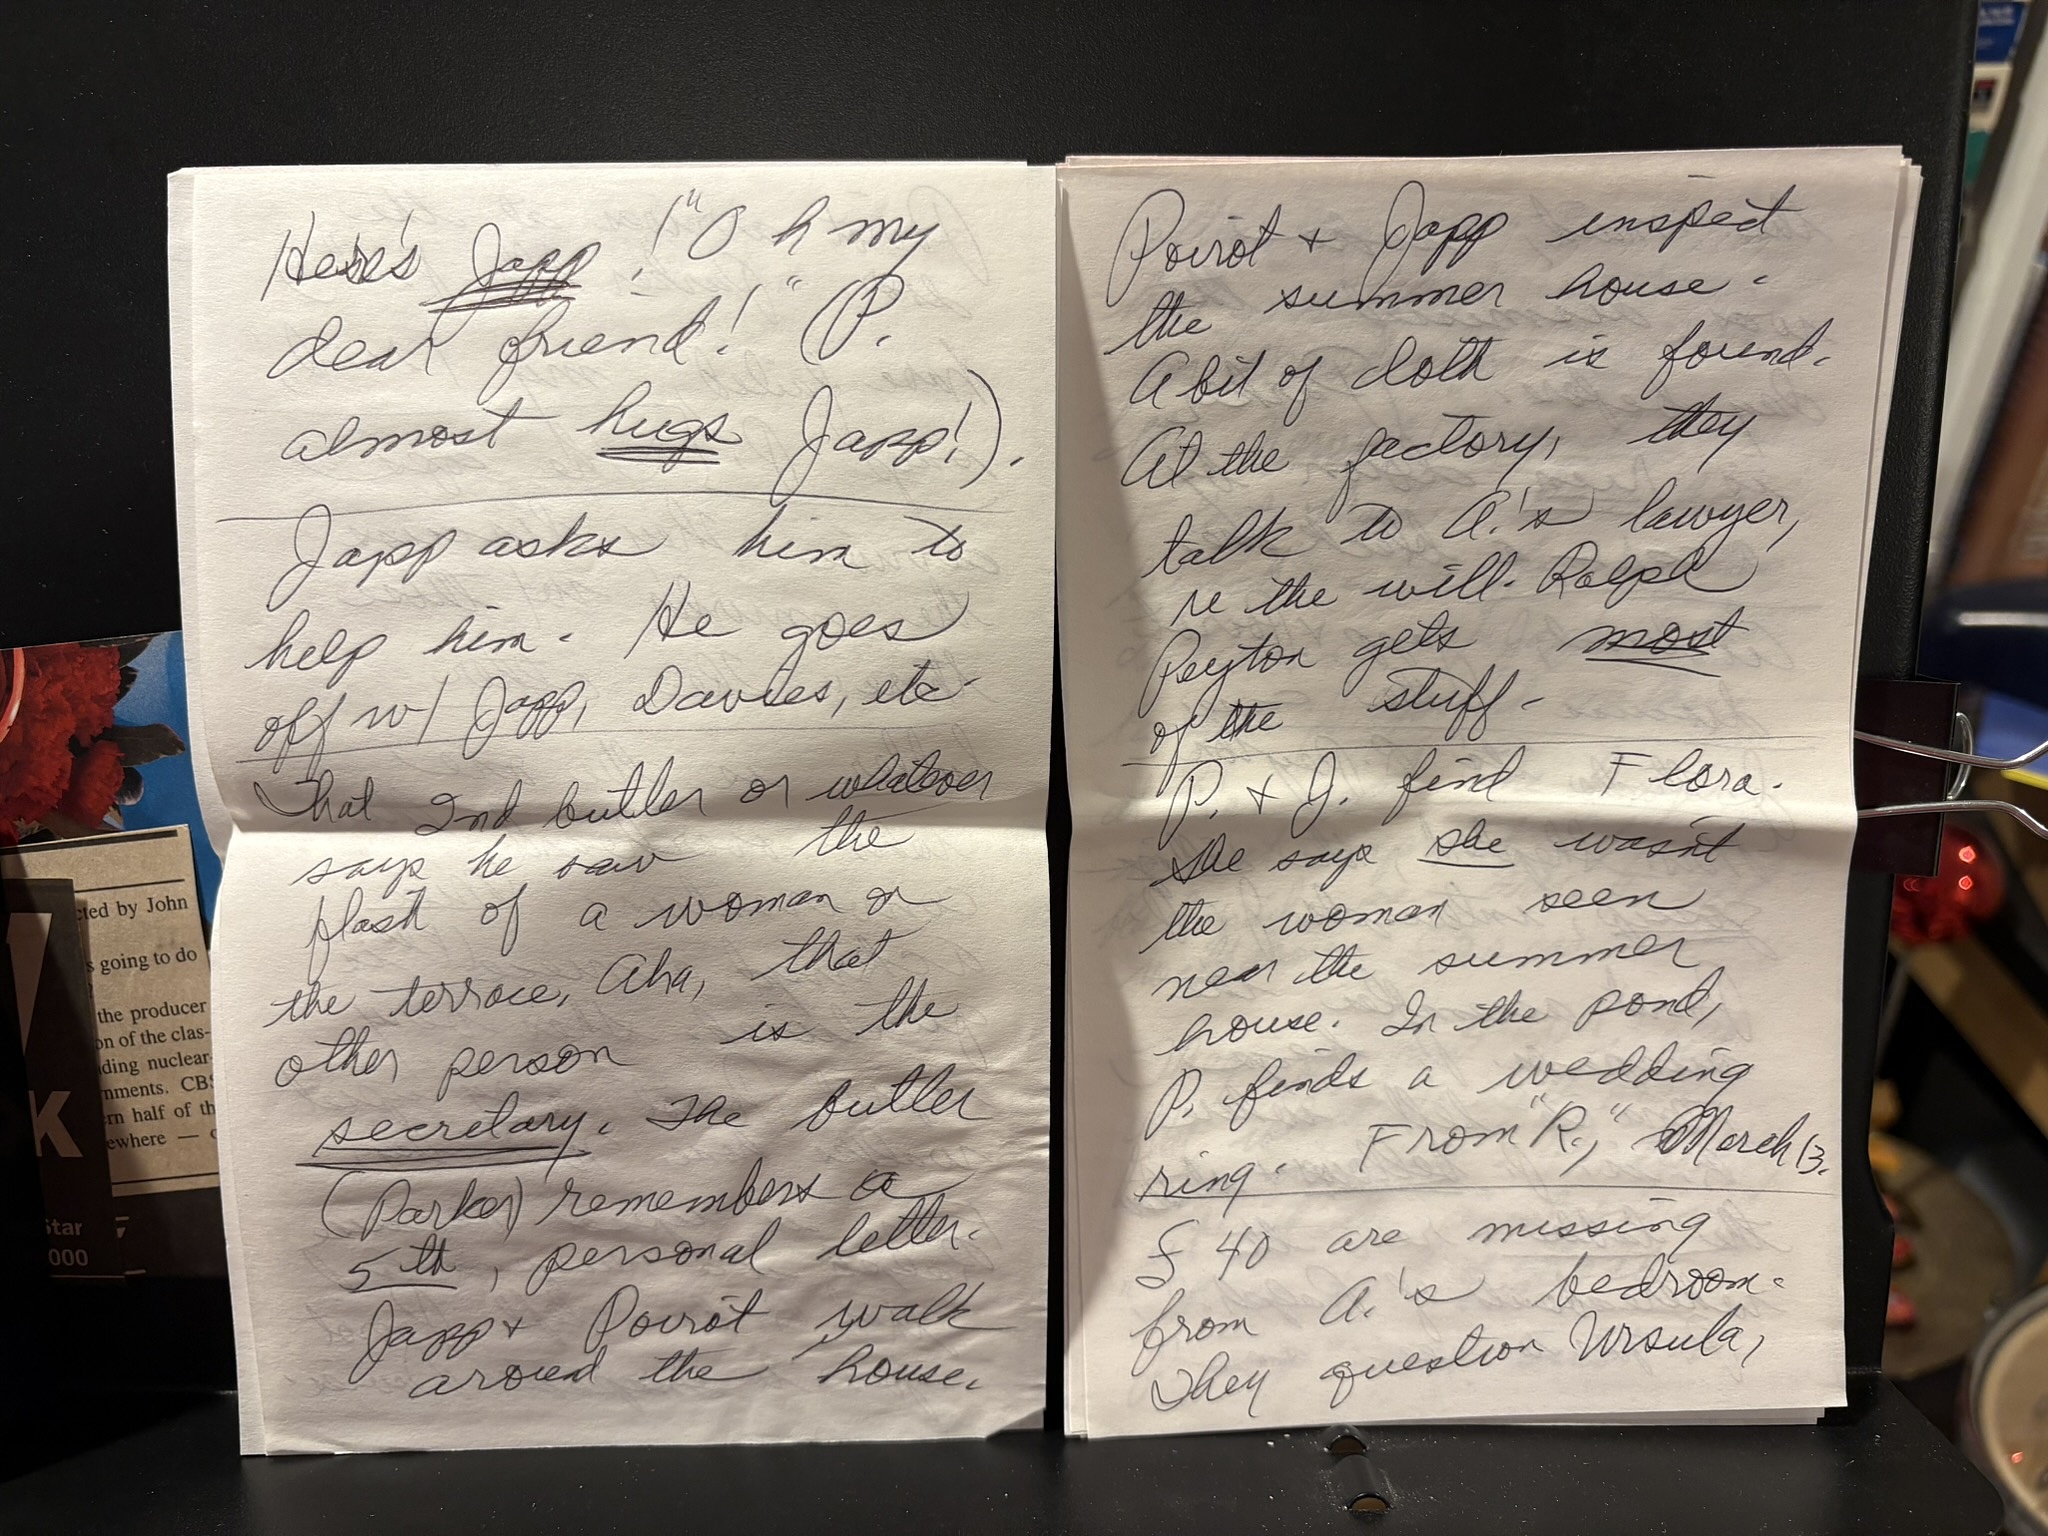 Here's Japp! "Oh my
dear friend!" (P.
almost hugs Japp!).
Japp asks him to
help him. He goes
off w/ Japp, Davies, etc.
That 2nd butler or whatever
says he saw the
flash of a woman on
the terrace. Aha, that
other person is the
secretary. The butler
(Parker) remembers a
5th, personal letter.
Japp & Poirot walk
around the house.
Poirot & Japp inspect
the summer house.
A bit of cloth is found.
At the factory, they
talk to A.'s lawyer,
re the will. Ralph
Peyton gets most
of the stuff.
P. & J. find Flora.
She says she wasn't
the woman seen
near the summer
house. In the pond,
P. finds a wedding
ring. From "R.," March 13.
£40 are missing
from A.'s bedroom.
They question Ursula,
cted by John
s going to do
the producer
on of the clas-
ding nuclear-
nments. CBS
ern half of th
ewhere —
K
Star
000